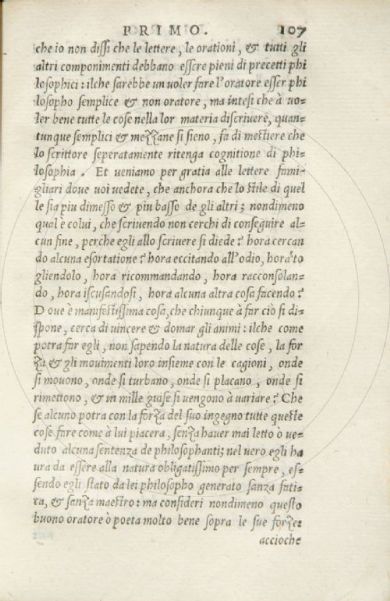 PRIMO. 107
che io non dissi che le lettere, le orationi, & tutti gli
altri componimenti debbano essere pieni di precetti phi
losophici: ilche sarebbe un uoler fare l'oratore esser phi
losopho semplice & non oratore, ma intesi che à uo-
ler bene tutte le cose nella lor materia discriuere, quan-
tunque semplici & mezzane si sieno, fa di mestiere che
lo scrittore seperatamente ritenga cognitione di phi-
losophia. Et ueniamo per gratia alle lettere fami-
gliari doue uoi uedete, che anchora che lo stile di quel
le sia piu dimesso & piu basso de gli altri; nondimeno
qual e colui, che scriuendo non cerchi di conseguire al-
cun fine, perche egli allo scriuere si diede? hora cercan
do alcuna esortatione? hora eccitando all'odio, hora to
gliendolo, hora ricommandando, hora racconsolan-
do, hora iscusandosi, hora alcuna altra cosa facendo?
Doue è manifestissima cosa, che chiunque à far cio si di-
spone, cerca di uincere & domar gli animi: ilche come
potra far egli, non sapendo la natura delle cose, la for
za & gli mouimenti loro insieme con le cagioni, onde
si mouono, onde si turbano, onde si placano, onde si
rimettono, & in mille guise si uengono à uariare? Che
se alcuno potra con la forza del suo ingegno tutte queste
cose fare come à lui piacera, senza hauer mai letto ò ue-
duto alcuna sentenza de philosophanti; nel uero egli ha
ura da essere alla natura obligatissimo per sempre, es-
sendo egli stato da lei philosopho generato sanza fati-
ca, & sanza maestro: ma consideri nondimeno questo
buono oratore ò poeta molto bene sopra le sue forze:
accioche